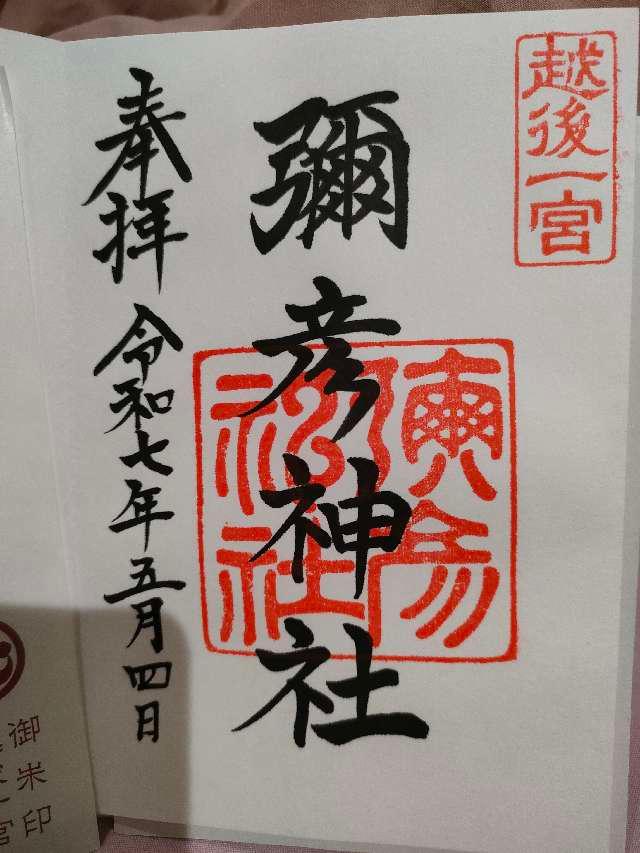 越後一宮
彌彦神社
奉拝
令和七年五月四日
御朱印